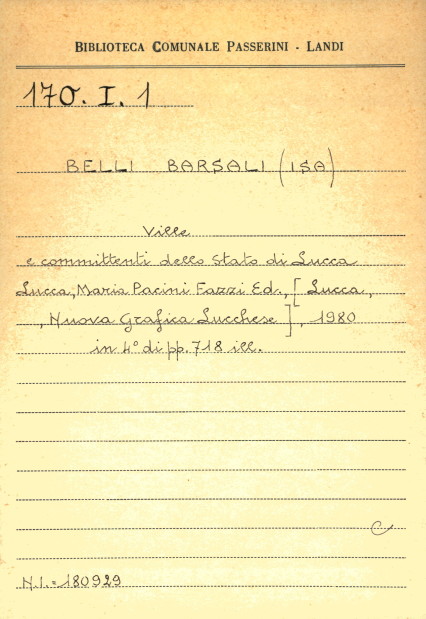 BIBLIOTECA COMUNALE PASSERINI - LANDI
170. I. 1
BELLI BARSALI (ISA)
Ville
e committenti dello Stato di Lucca
Lucca, Maria Pacini Fazzi Ed., [Lucca,
, Nuova Grafica Lucchese], 1980
in 4° di pp. 718 ill.
C
N.I. = 180929